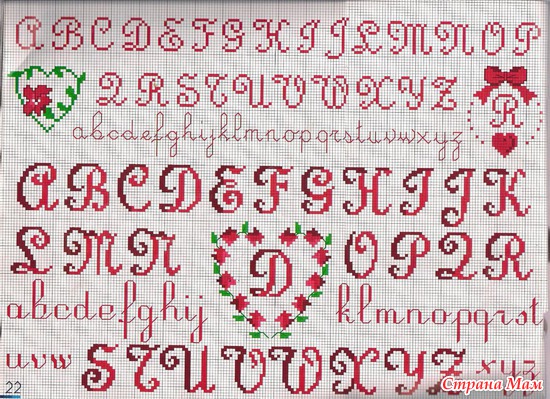 A B C D E F G H I J L M N O P
Q R S T U V W X Y Z
R
abcdefghijklmnopqrstuvwxyz
A B C D E F G H I J K
L M N D O P Q R
abcdefghij klmnopqrst
uvw S T U V W X Y Z xyz
22
Страна Мам